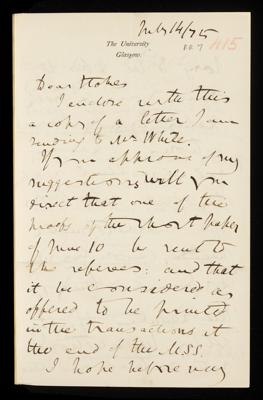 July 14/75
The University
Glasgow.
K15
Dear Stokes
I enclose with this
a copy of a letter I am
sending to Mr White.
If you approve of my
suggestions, will you
direct that one of the
proofs of the short paper
of June 10 be sent to
the referees: and that
it be considered as
offered to be printed
in the transactions at
the end of the M.S.S.
I hope before